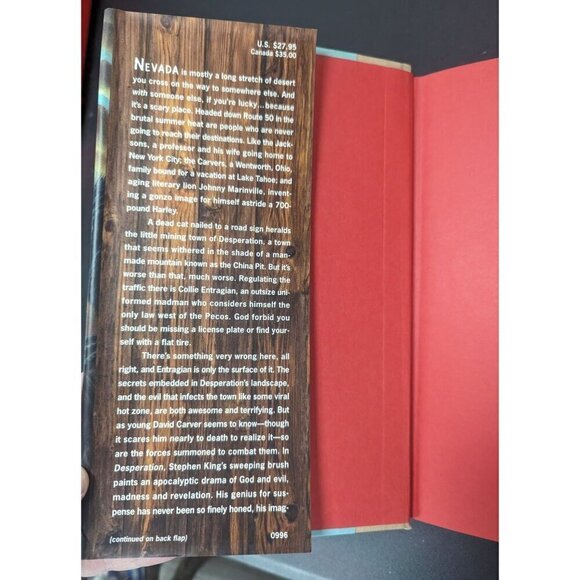 U.S. $27.95
Canada $35.00
NEVADA is mostly a long stretch of desert
you cross on the way to somewhere else. And
with someone else, if you're lucky...because
it's a scary place. Headed down Route 50 in the
brutal summer heat are people who are never
going to reach their destinations. Like the Jack-
sons, a professor and his wife going home to
New York City; the Carvers, a Wentworth, Ohio,
family bound for a vacation at Lake Tahoe; and
aging literary lion Johnny Marinville, invent-
ing a gonzo image for himself astride a 700-
pound Harley.
A dead cat nailed to a road sign heralds
the little mining town of Desperation, a town
that seems withered in the shade of a man-
made mountain known as the China Pit. But it's
worse than that, much worse. Regulating the
traffic there is Collie Entragian, an outsize uni-
formed madman who considers himself the
only law west of the Pecos. God forbid you
should be missing a license plate or find your-
self with a flat tire.
There's something very wrong here, all
right, and Entragian is only the surface of it. The
secrets embedded in Desperation's landscape,
and the evil that infects the town like some viral
hot zone, are both awesome and terrifying. But
as young David Carver seems to know—though
it scares him nearly to death to realize it—so
are the forces summoned to combat them. In
Desperation, Stephen King's sweeping brush
paints an apocalyptic drama of God and evil,
madness and revelation. His genius for sus-
pense has never been so finely honed, his imag-
(continued on back flap)
0996